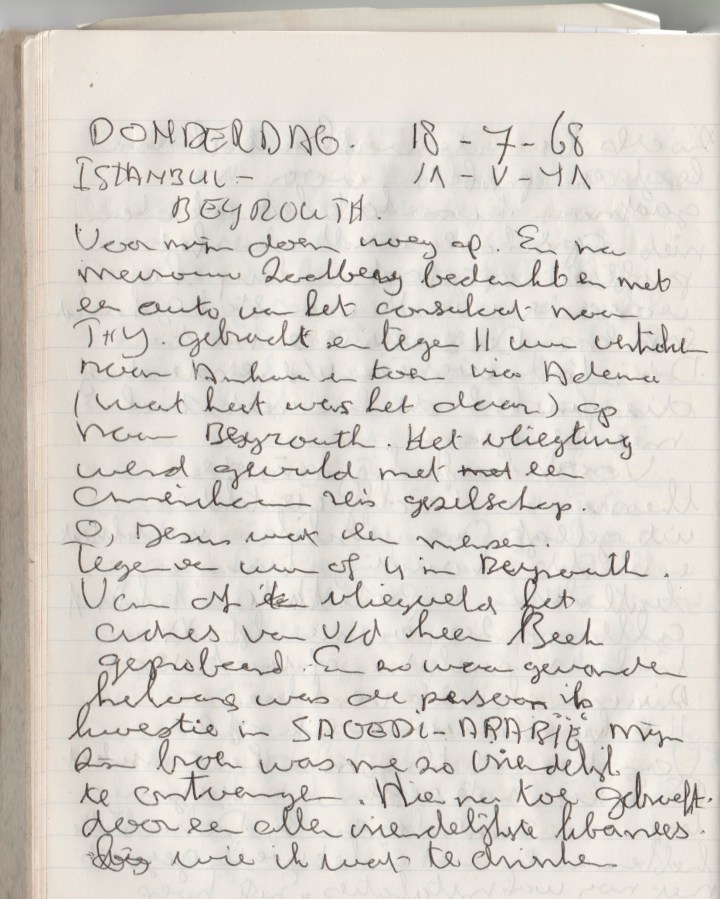 DONDERDAG. 18-7-68
ISTANBUL- 11-V-41
BEYROUTH
Voor mijn doen vroeg op. En na
mevrouw Zoelberg bedankt en met
een auto van het consulaat naar
THY. gebracht en tegen 11 uur vertrokken
naar Ankara en toen via Adena
(wat heet was het daar) op
naar Beyrouth. Het vliegtuig
werd gevuld met een
Amerikaans reis gezelschap.
O, Jesus wat een mensen.
Tegen een uur of 4 in Beyrouth.
Van af vliegveld het
adres van v/d heer Beek
geprobeerd. En zowaar gevonden
helaas was de persoon in
kwestie in SAOEDI-ARABIË. Mijn
zijn broer was me zo vriendelijk
te ontvangen. Hierna toe gebracht.
door een aller vriendelijkste libanees.
wie ik wat te drinken